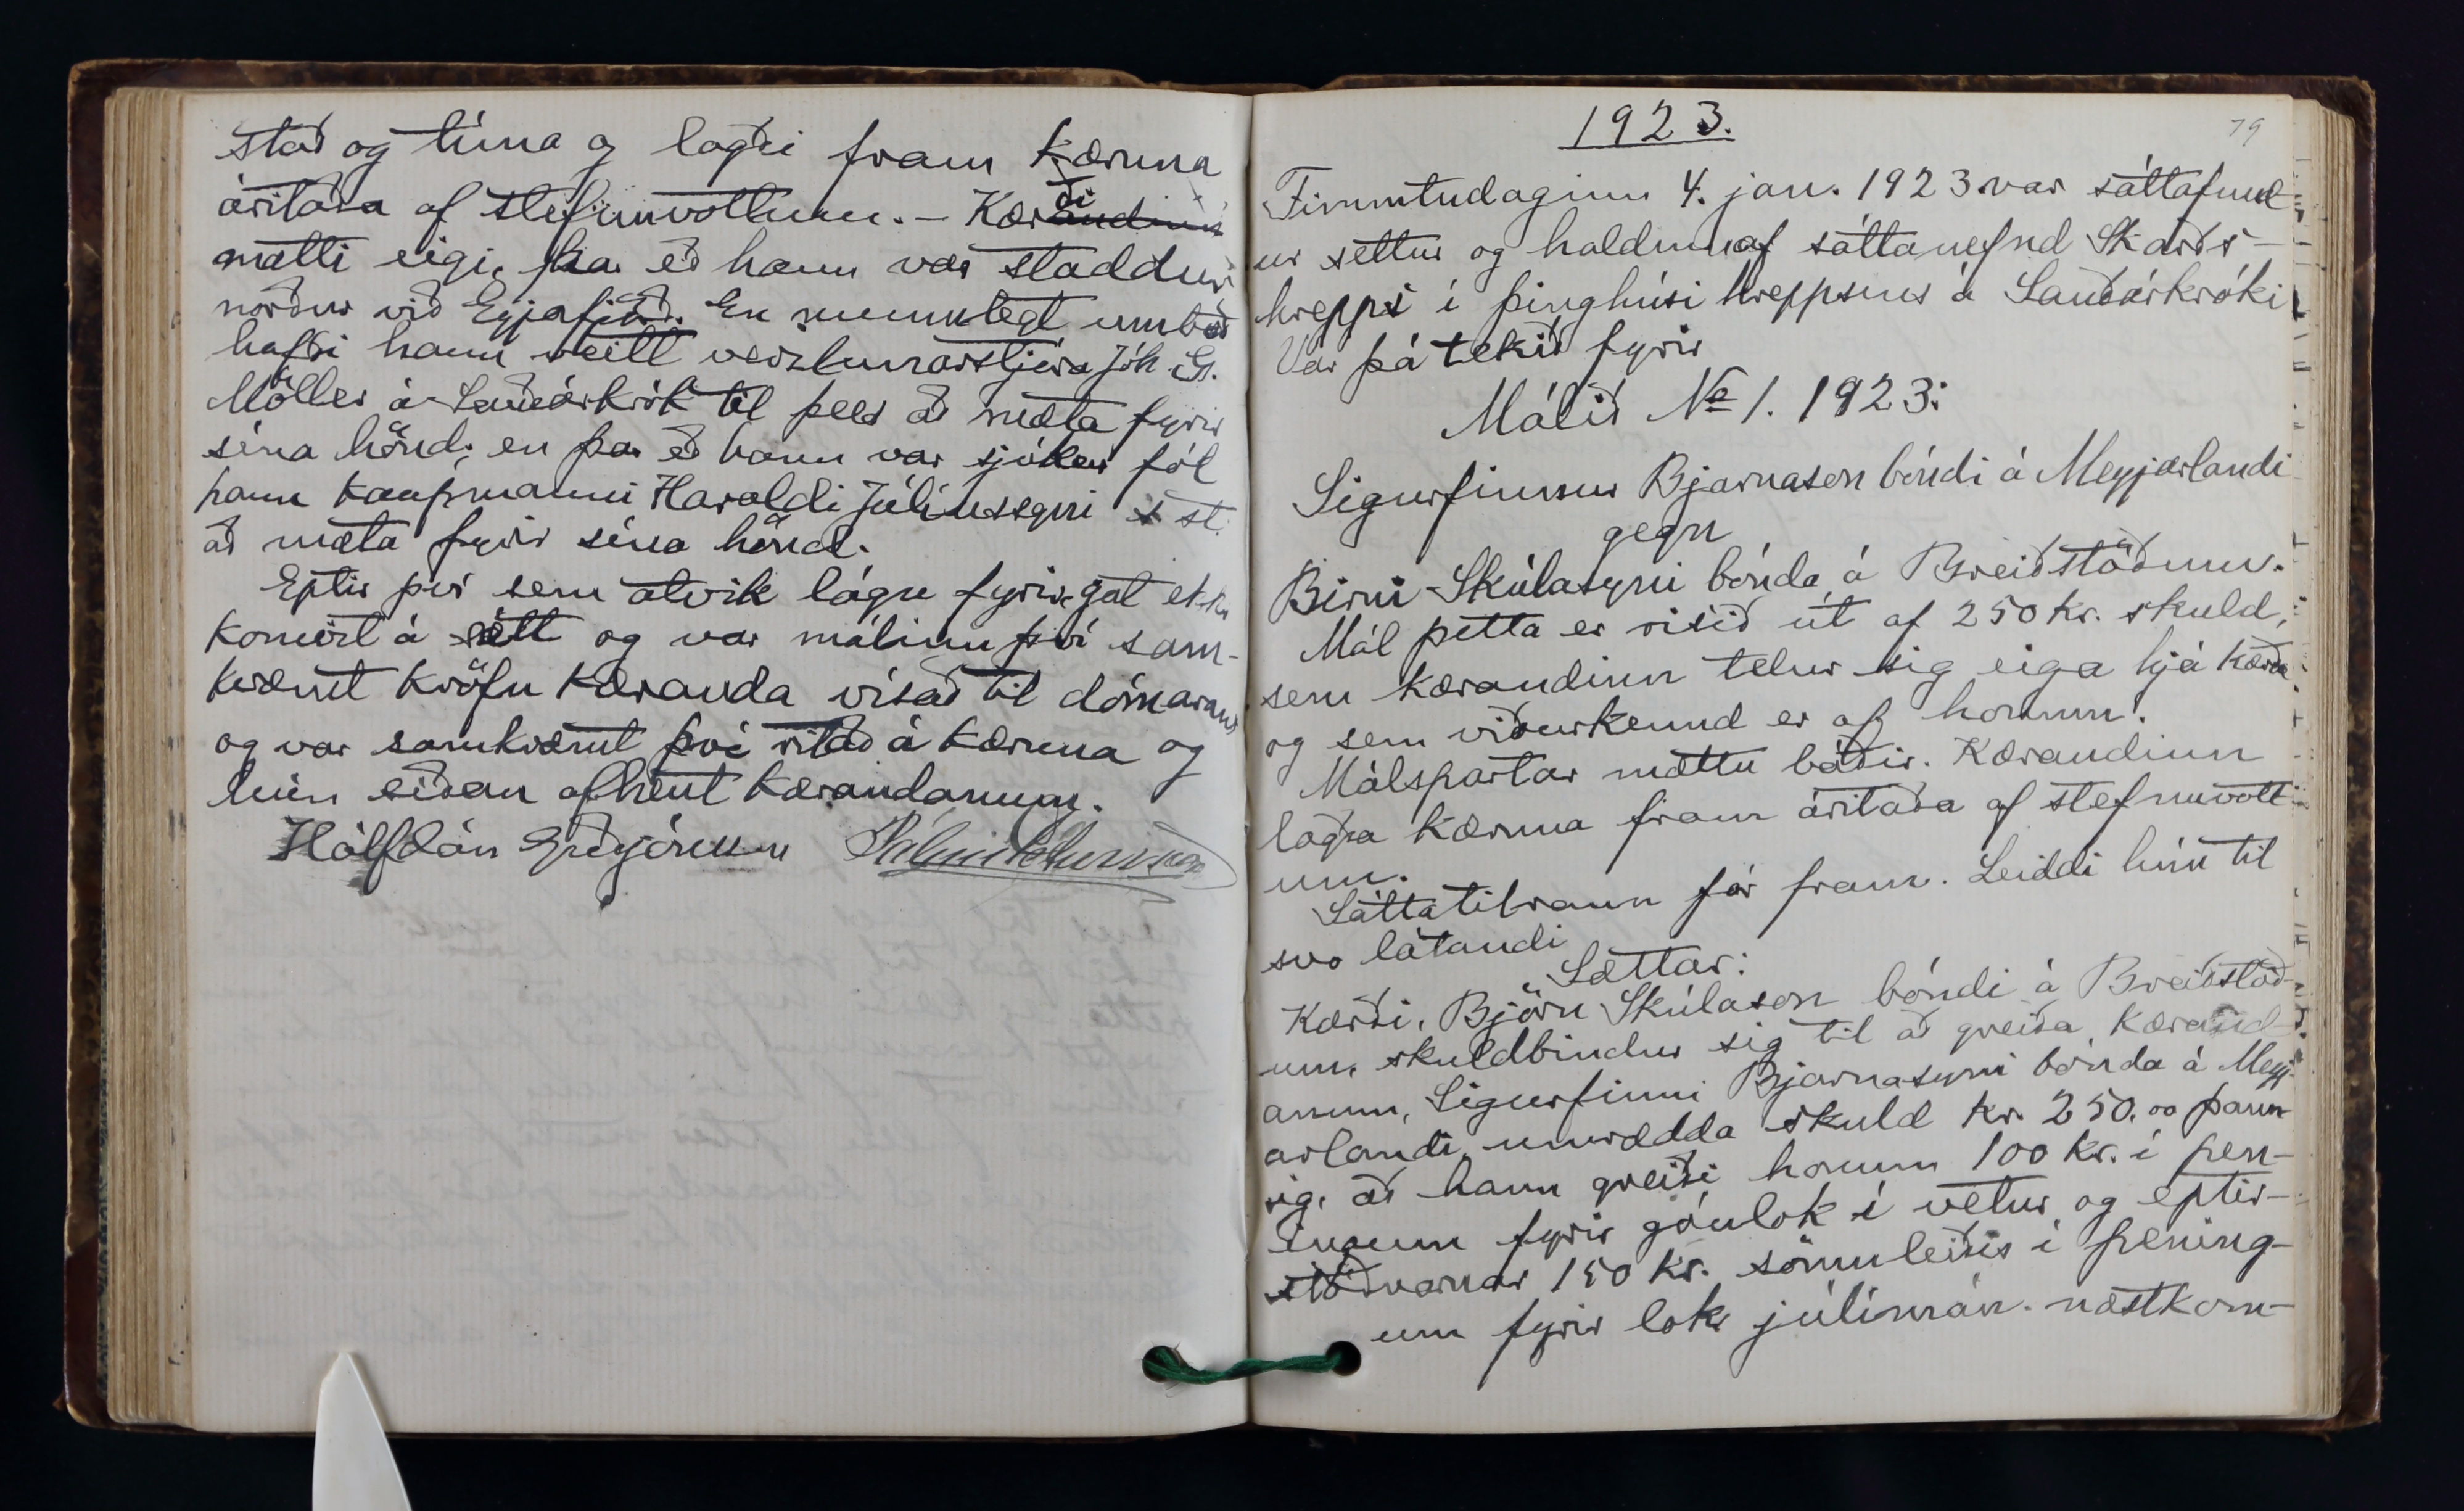 stað og tíma og lagði fram kæruna
áritaða af stefnuvottum. - Kærði
mætti eigi, þar eð hann var staddur
norður við Eyjafjörð. En munnlegt umboð
hafði hann veitt verzlunarstjóra Jóh. G.
Möller á Sauðárkrók til þess að mæta fyrir
sína hönd; en þar eð hann var sjúkur fól
hann kaupmanni Haraldi Júlíussyni s st.
að mæta fyrir sína hönd.
Eptir því sem atvik lágu fyrir, gat ekki
komizt á sátt og var málinu því sam-
kvæmt kröfu kæranda vísað til dómarans
og var samkvæmt því ritað á kæruna og
hún síðan afhent kærandanum.
Hálfdán Guðjónsson Pálmi Þóroddsson
79
1923.
Fimmtudaginn 4. jan. 1923 var sáttafund-
ur settur og haldinn af sáttanefnd Skarðs-
hrepps í þinghúsi hreppsins á Sauðárkróki
Var þá tekið fyrir
Málið No 1. 1923:
Sigurfinnur Bjarnason bóndi á Meyjarlandi
gegn
Birni Skúlasyni bónda á Breiðstöðum.
Mál þetta er risið út af 250 kr. skuld,
sem kærandinn telur sig eiga hjá kærða
og sem viðurkennd er af honum.
Málspartar mættu báðir. Kærandinn
lagða kæruna fram áritaða af stefnuvott-
um.
Sáttatilraun fór fram. Leiddi hún til
svo látandi
Sættar:
Kærði, Björn Skúlason bóndi á Breiðstöð-
um, skuldbindur sig til að greiða kærand-
anum, Sigurfinni Bjarnasyni bónda á Meyj-
arlandi, umrædda skuld kr. 250.00 þann-
ig, að hann greiði honum 100 kr. í pen-
ingum fyrir góulok í vetur og eptir-
stöðvarnar 150 kr. sömuleiðis í pening-
um fyrir lok júlímán. næstkom-